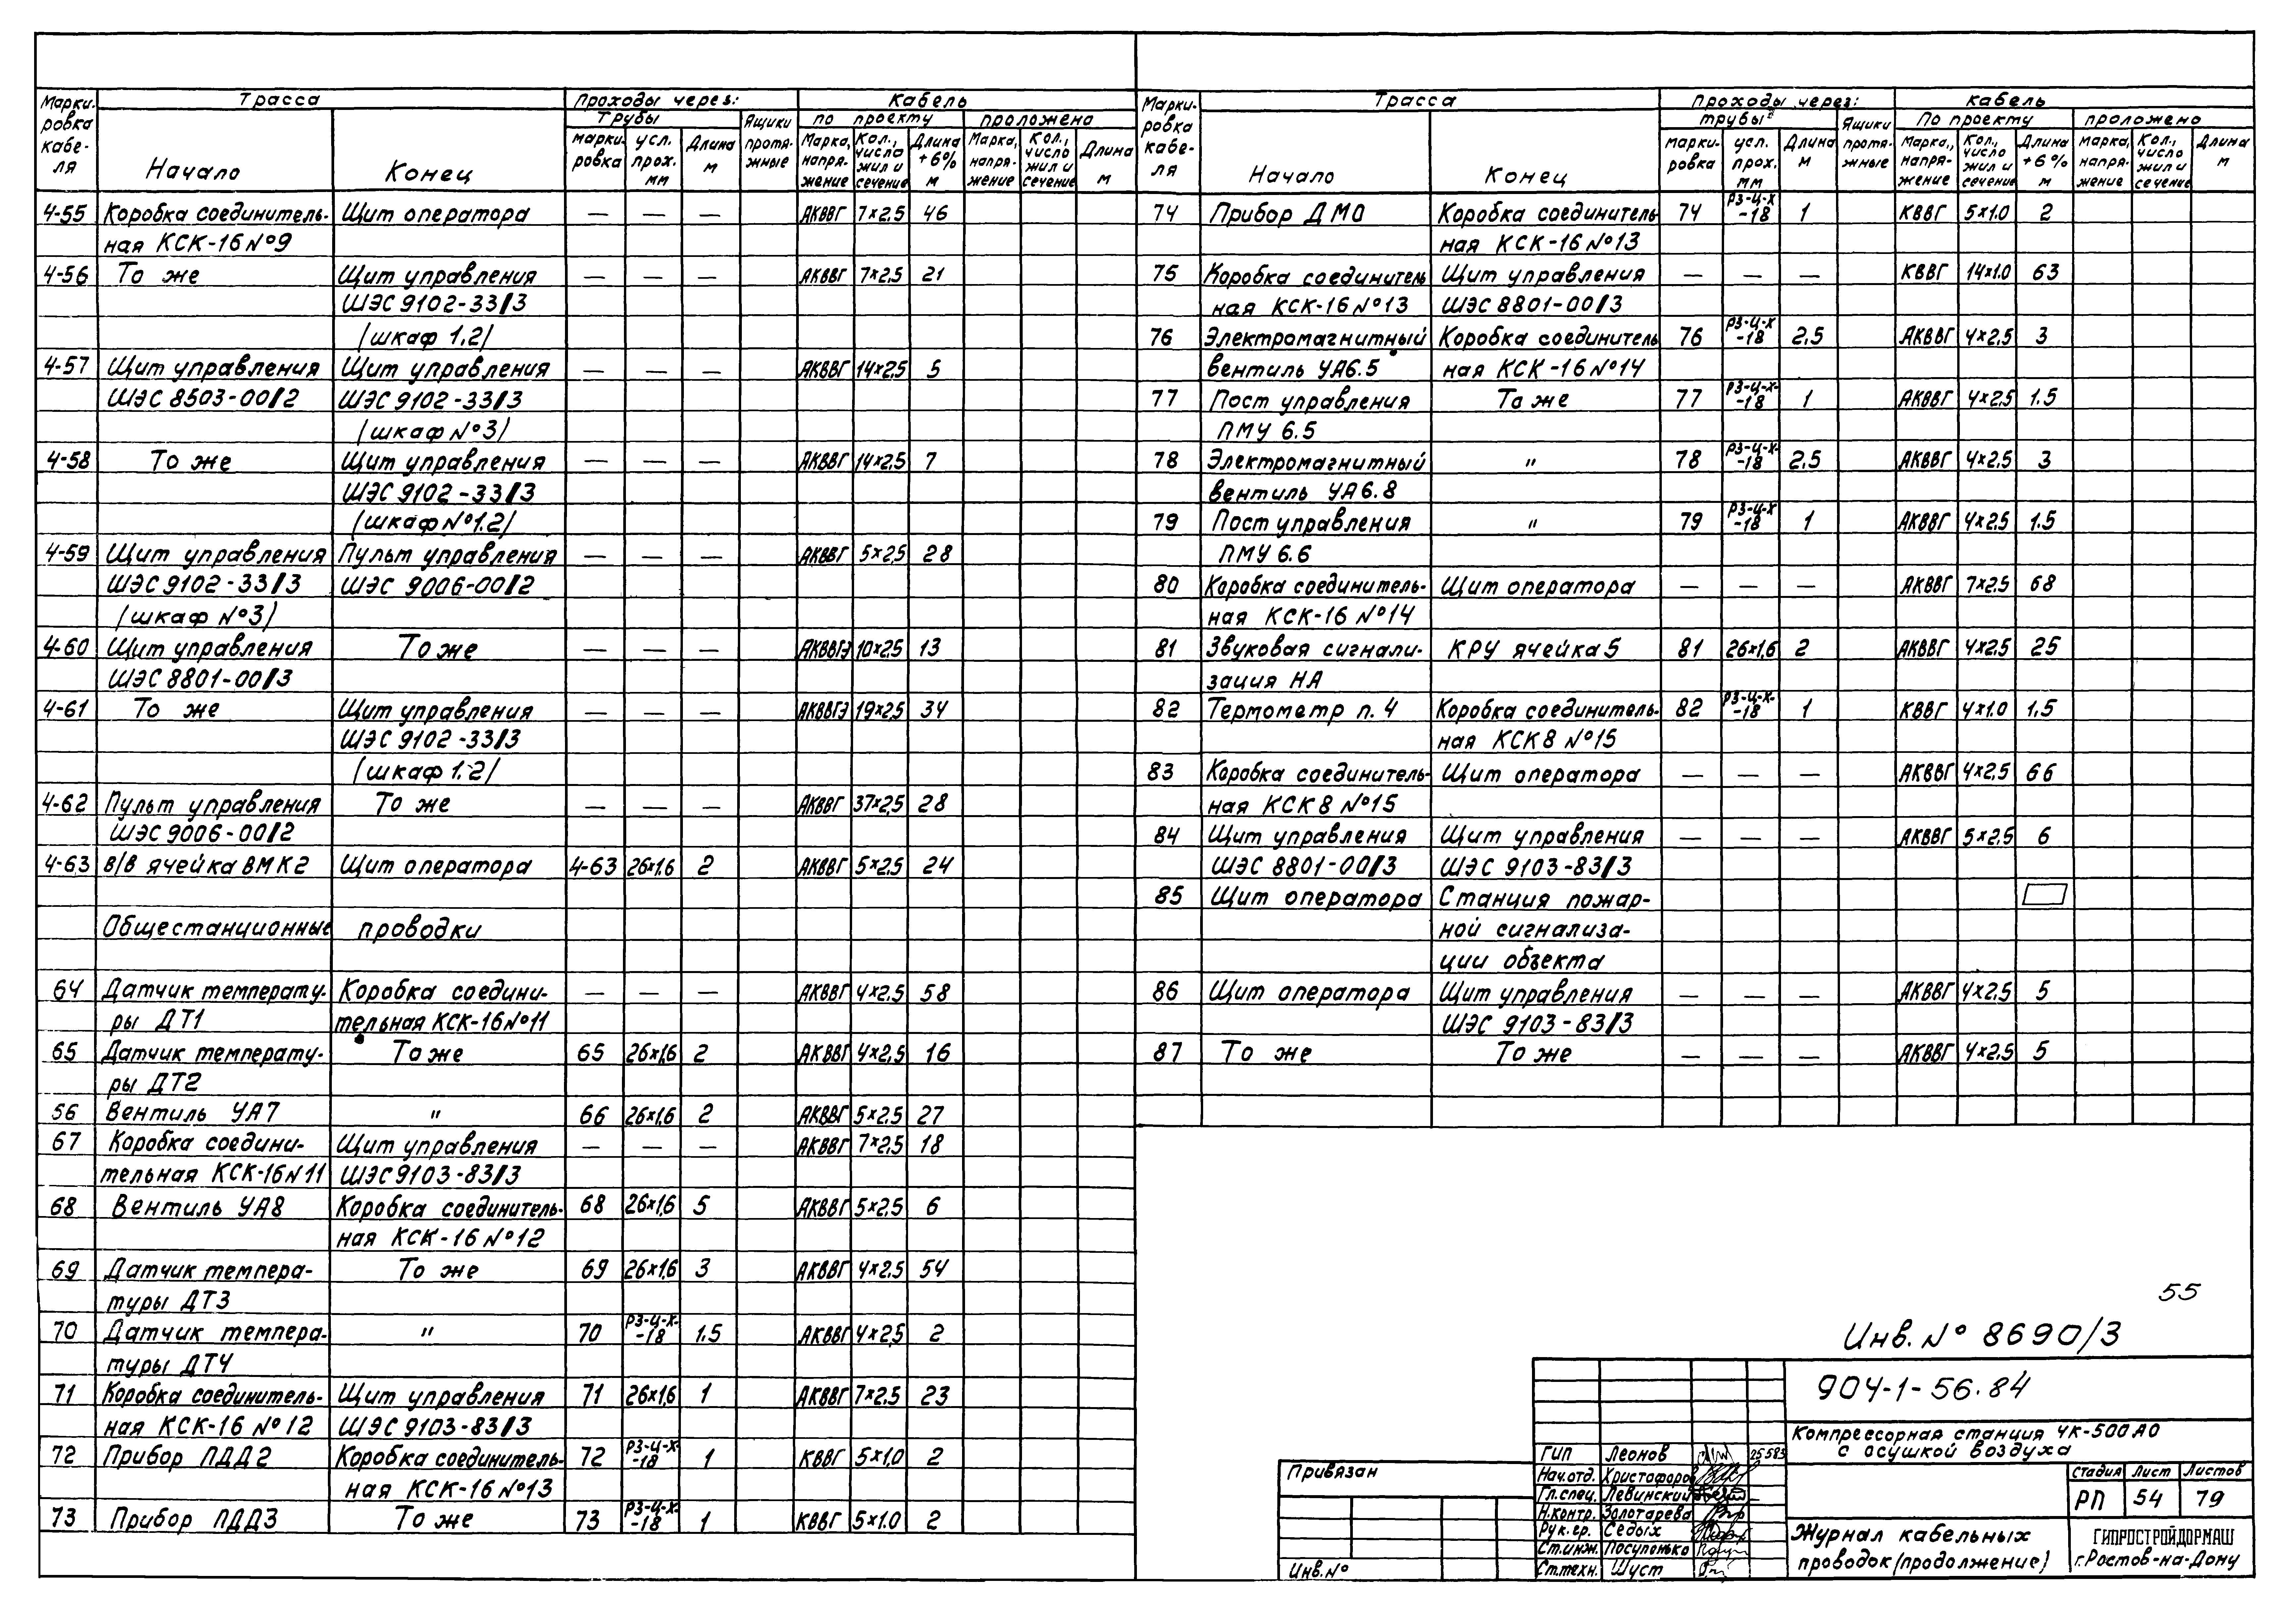 Марки- Трасса Проходы через: Кабель
ровка Трубы Ящики по проекту проложено
кабе- Начало Конец марки- усл. Длина протя- Марка, Кол., Длина Марка, Кол., Длина
ля ровка прох. м жные напря- число +6% напря- число м
мм жение жил и м жение жил и
сечение сечение
4-55 Коробка соединитель- Щит оператора — — — АКВВГ 7×2,5 46
ная КСК-16 №9
4-56 То же Щит управления — — — АКВВГ 7×2,5 21
ШЭС 9102-33/3
(шкаф 1.2)
4-57 Щит управления Щит управления — — — АКВВГ 14×2,5 5
ШЭС 8503-00/2 ШЭС 9102-33/3
(шкаф №3)
4-58 То же Щит управления — — — АКВВГ 14×2,5 7
ШЭС 9102-33/3
(шкаф №1.2)
4-59 Щит управления Пульт управления — — — АКВВГ 5×2,5 28
ШЭС 9102-33/3 ШЭС 9006-00/2
(шкаф №3)
4-60 Щит управления То же — — — АКВВГЭ 10×2,5 13
ШЭС 8801-00/3
4-61 То же Щит управления — — — АКВВГЭ 19×2,5 34
ШЭС 9102-33/3
(шкаф 1.2)
4-62 Пульт управления То же — — — АКВВГ 37×2,5 28
ШЭС 9006-00/2
4-63 В/В ячейка ВМК2 Щит оператора 4-63 26×1,6 2 АКВВГ 5×2,5 24
Общестанционные проводки
64 Датчик температу- Коробка соедини- — — — АКВВГ 4×2,5 58
ры ДТ1 тельная КСК-16 №11
65 Датчик температу- То же 65 26×1,6 2 АКВВГ 4×2,5 16
ры ДТ2
56 Вентиль УА7 " 66 26×1,6 2 АКВВГ 5×2,5 27
67 Коробка соедини- Щит управления — — — АКВВГ 7×2,5 18
тельная КСК-16 №11 ШЭС 9103-83/3
68 Вентиль УА8 Коробка соединитель- 68 26×1,6 5 АКВВГ 5×2,5 6
ная КСК-16 №12
69 Датчик темпера- То же 69 26×1,6 3 АКВВГ 4×2,5 54
туры ДТ3
70 Датчик темпера- " 70 РЗ-Ц-Х-
-18 1.5 АКВВГ 4×2,5 2
туры ДТ4
71 Коробка соединитель- Щит управления 71 26×1,6 1 АКВВГ 7×2,5 23
ная КСК-16 №12 ШЭС 9103-83/3
72 Прибор ПДД2 Коробка соединитель- 72 РЗ-Ц-Х-
-18 1 КВВГ 5×1,0 2
ная КСК-16 №13
73 Прибор ПДД3 То же 73 РЗ-Ц-Х-
-18 1 КВВГ 5×1.0 2
Марки- Трасса Проходы через: Кабель
ровка трубы Ящики По проекту проложено
кабе- Начало Конец марки- усл. Длина протя- Марка, Кол., Длина Марка, Кол., Длина
ля ровка прох. м жные напря- число +6% напря- число м
мм жение жил и м жение жил и
сечение сечение
74 Прибор ДМО Коробка соединитель 74 РЗ-Ц-Х
-18 1 КВВГ 5×1.0 2
ная КСК-16 №13
75 Коробка соединитель Щит управления — — — КВВГ 14×1.0 63
ная КСК-16 №13 ШЭС 8801-00/3
76 Электромагнитный Коробка соединитель 76 РЗ-Ц-Х
-18 2,5 АКВВГ 4×2,5 3
вентиль УА6.5 ная КСК-16 №14
77 Пост управления То же 77 РЗ-Ц-Х-
-18 1 АКВВГ 4×2,5 1.5
ПМУ 6.5
78 Электромагнитный " 78 РЗ-Ц-Х-
-18 2,5 АКВВГ 4×2,5 3
вентиль УА6.8
79 Пост управления " 79 РЗ-Ц-Х
-18 1 АКВВГ 4×2,5 1.5
ПМУ 6.6
80 Коробка соединитель- Щит оператора — — — АКВВГ 7×2,5 68
ная КСК-16 №14
81 Звуковая сигнали- КРУ ячейка 5 81 26×1,6 2 АКВВГ 4×2,5 25
зация НА
82 Термометр п. 4 Коробка соединитель- 82 РЗ-Ц-Х-
-18 1 КВВГ 4×1.0 1,5
ная КСК8 №15
83 Коробка соединитель- Щит оператора — — — АКВВГ 4×2,5 66
ная КСК8 №15
84 Щит управления Щит управления — — — АКВВГ 5×2,5 6
ШЭС 8801-00/3 ШЭС 9103-83/3
85 Щит оператора Станция пожар-
ной сигнализа-
ции объекта
86 Щит оператора Щит управления — — — АКВВГ 4×2,5 5
ШЭС 9103-83/3
87 То же То же — — — АКВВГ 4×2,5 5
55
Инв. № 8690/3
904-1-56.84
Компрессорная станция ЧК-500АО
с осушкой воздуха
Стадия Лист Листов
РП 54 79
Журнал кабельных
проводок (продолжение)
ГИПРОСТРОЙДОРМАШ
г. Ростов-на-Дону
ГИП Леонов 25.583
Нач.отд. Христофоров
Гл.спец. Левинский
Н.контр. Золотарева
Рук.гр. Седых
Ст.инж. Посупонько
Ст.техн. Шуст
Привязан
Инв. №